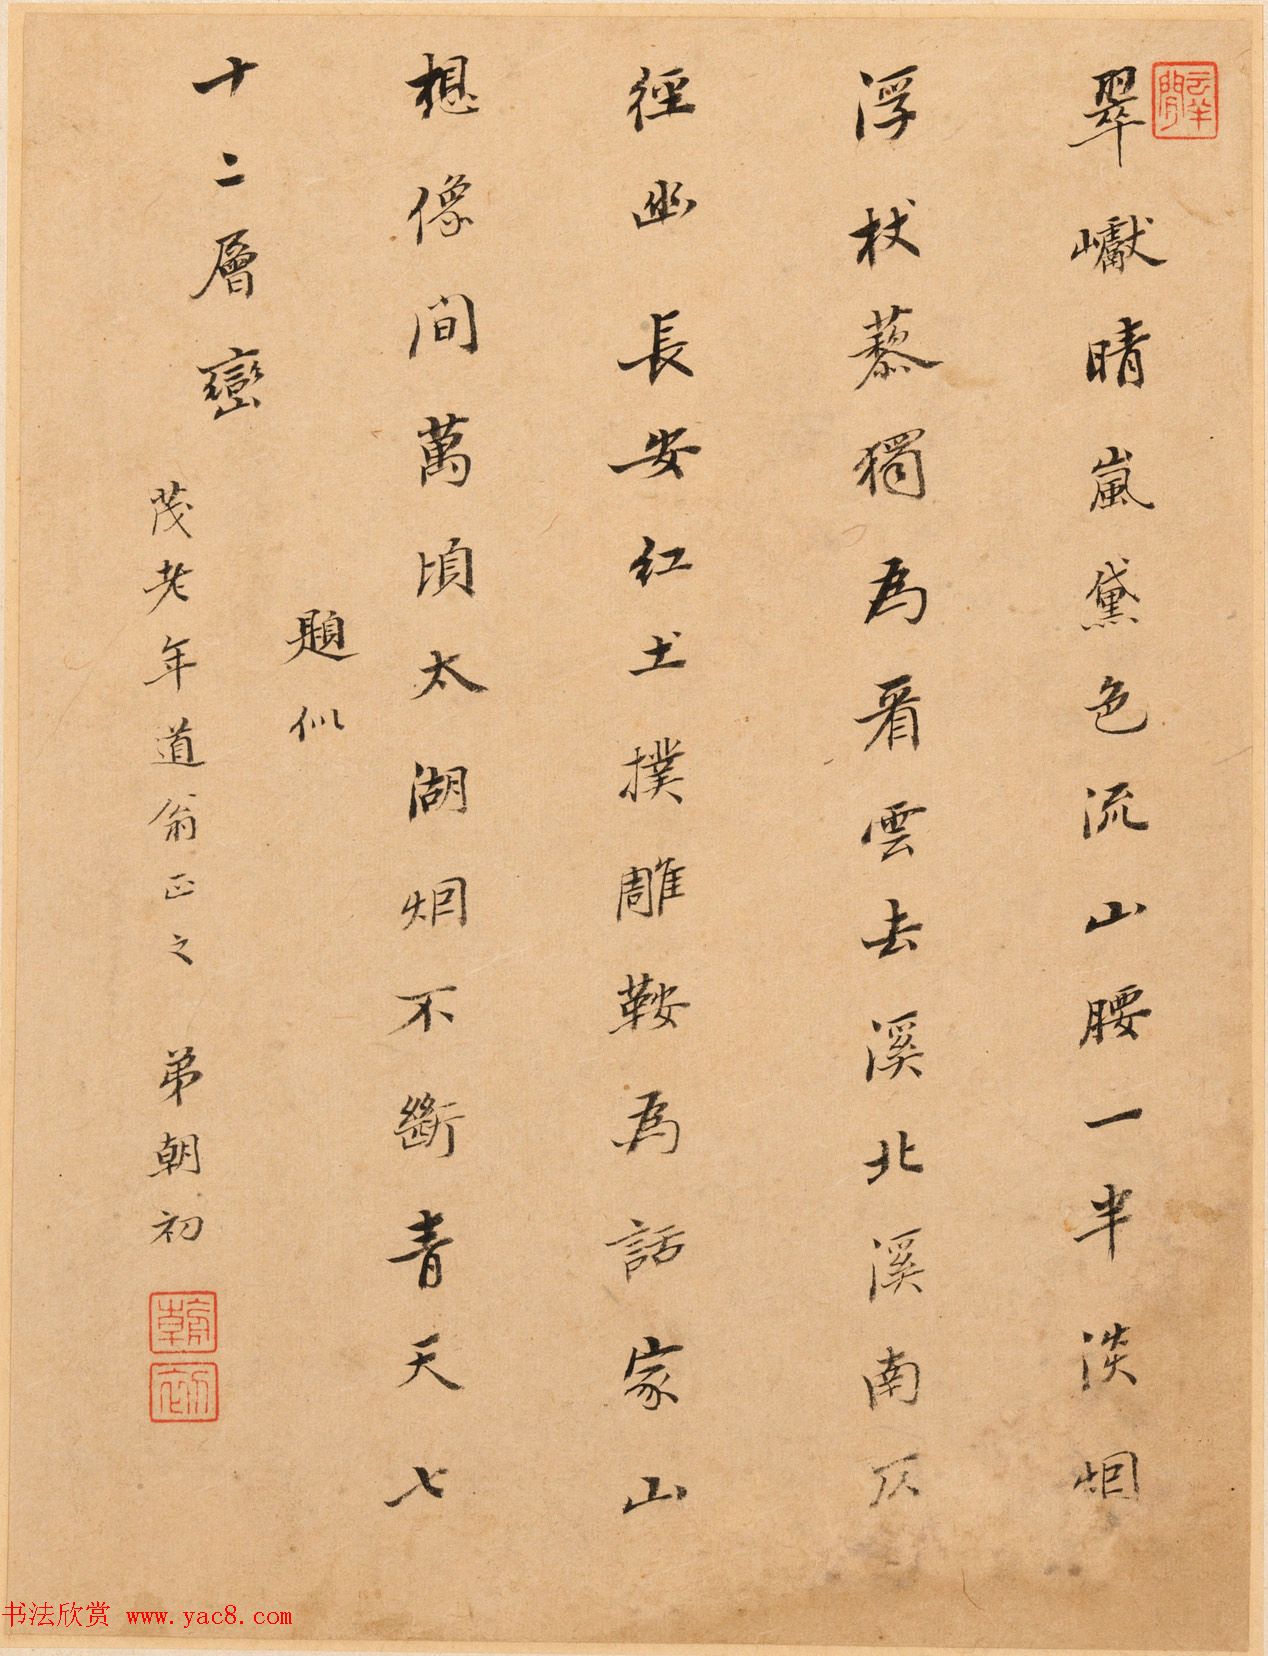 翠巘晴嵐黛色流山腰一半淡烟
浮杖藜獨為看雲去溪北溪南仄
徑幽長安紅土撲雕鞍為話家山
想像間萬頃太湖烟不斷青天七
十二層巒
題似
茂老年道翁正之 弟朝初
朝初
书法欣赏 www.yac8.com